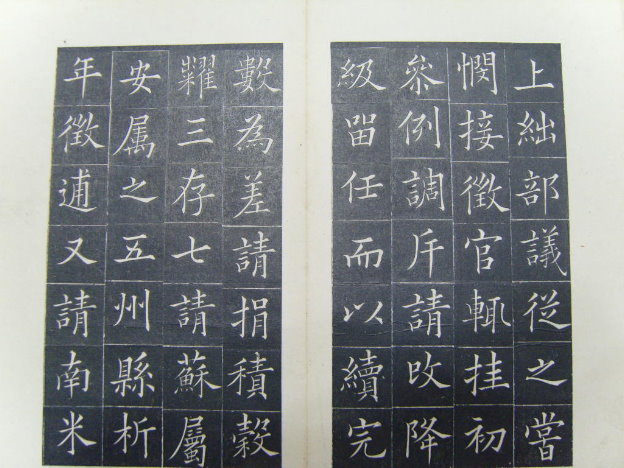 上絀部議從之嘗
憫接徵官輒挂初
叅例調斥請改降
級畱任而以續完
數為差請捐積穀
糶三存七請蘇屬
安属之五州縣析
年徵逋又請南米